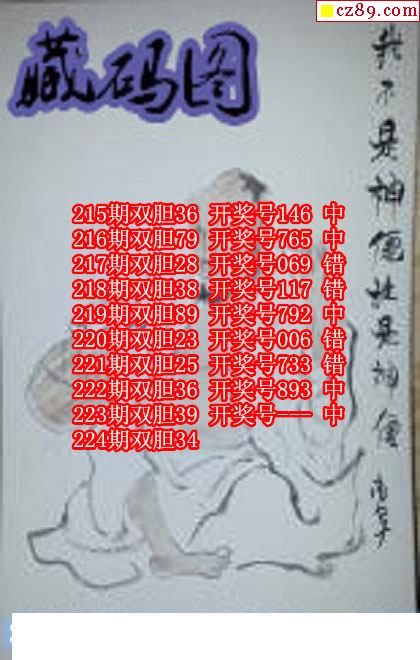 cz89.com
藏码图
我不是神但她是神僊
215期双胆36 开奖号146 中
216期双胆79 开奖号765 中
217期双胆28 开奖号069 错
218期双胆38 开奖号117 错
219期双胆89 开奖号792 中
220期双胆23 开奖号006 错
221期双胆25 开奖号733 错
222期双胆36 开奖号893 中
223期双胆39 开奖号--- 中
224期双胆34